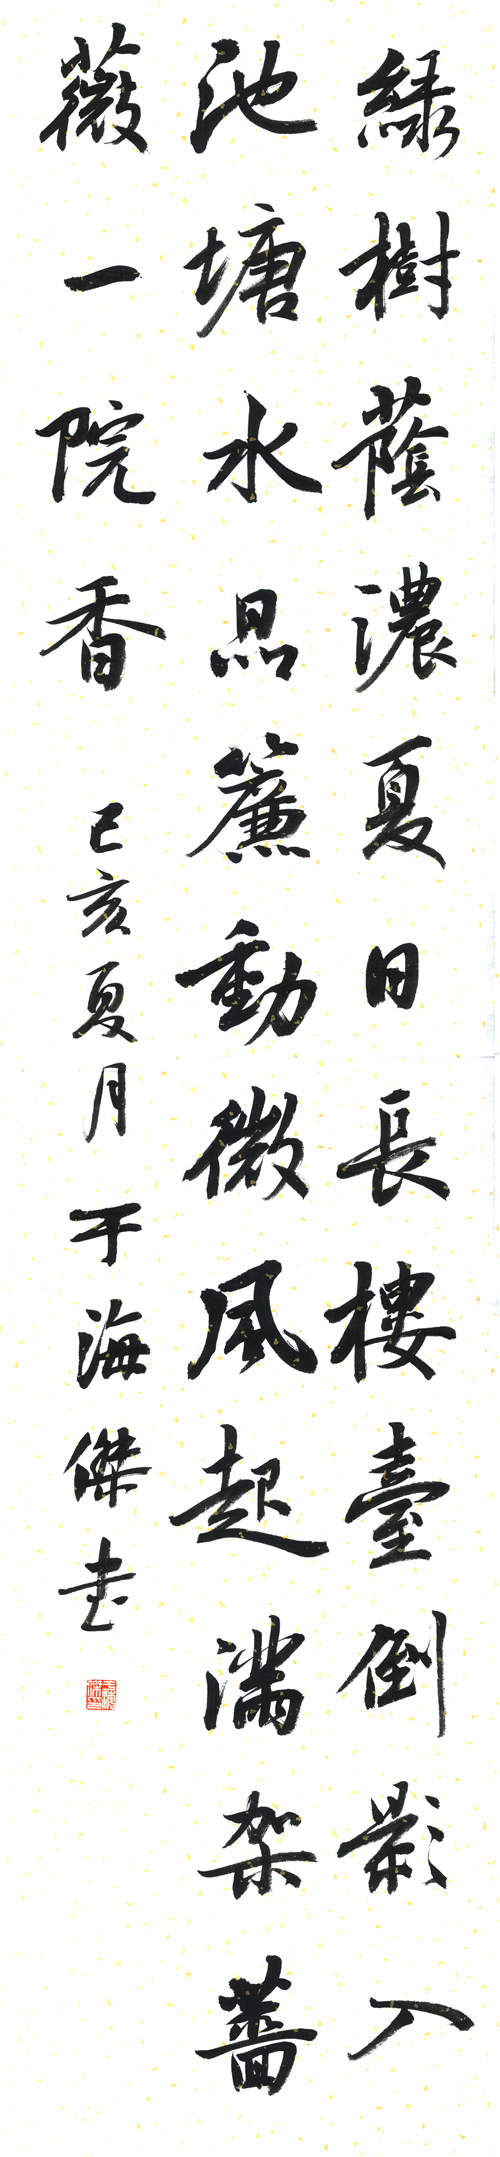 綠樹蔭濃夏日長樓臺倒影入
池塘水晶簾動微風起滿架薔
薇一院香
己亥夏月于海傑书